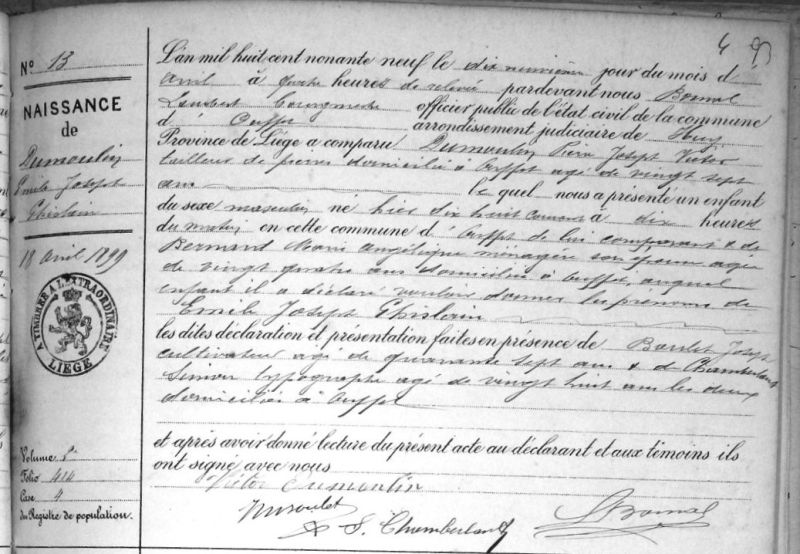 4
Nº 13
NAISSANCE
de
Dumoulin
Emile Joseph
Ghislain
18 avril 1899
A TIMBRER A L'EXTRAORDINAIRE
LIEGE
Volume
Folio 414
Case 4
du Registre de population.
L'an mil huit cent nonante neuf le dix neuvième jour du mois d'
avril à quatre heures de relevée pardevant nous Bomal
Lambert bourgmestre officier public de l'état civil de la commune
d' Ouffet arrondissement judiciaire de Huy
Province de Liége a comparu Dumoulin Pierre Joseph Victor
tailleur de pierres domicilié à Ouffet agé de vingt sept
ans lequel nous a présenté un enfant
du sexe masculin né hier dix huit courant à dix heures
du matin en cette commune d' Ouffet de lui comparant & de
Bernard Marie Angélique ménagère son épouse agée
de vingt quatre ans domiciliée à Ouffet auquel
enfant il a déclaré vouloir donner les prénoms de
Emile Joseph Ghislain
les dites déclaration et présentation faites en présence de Joseph
cultivateur agé de quarante sept ans & de Chamberland
Simon typographe agé de vingt huit ans les deux
domiciliés à Ouffet
et après avoir donné lecture du présent acte au déclarant et aux témoins ils
ont signé avec nous
Victor Dumoulin
S. Chamberland
LBomal